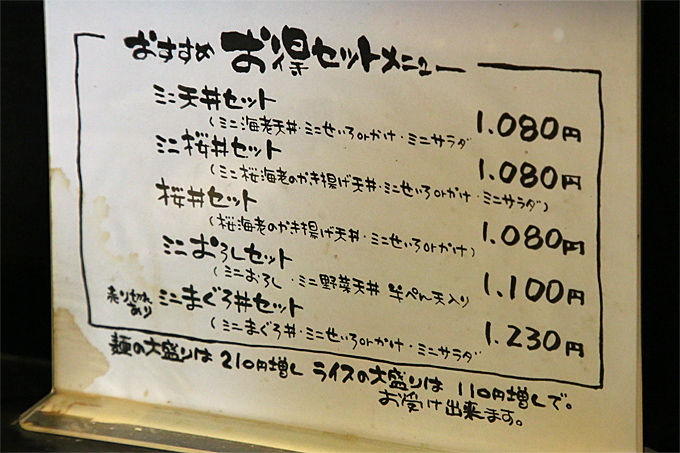 おすすめ お得セットメニュー
ミニ天丼セット 1.080円
(ミニ海老天丼・ミニせいろorかけ・ミニサラダ
ミニ桜丼セット 1.080円
(ミニ桜海老のかき揚げ天丼・ミニせいろorかけ・ミニサラダ)
桜丼セット 1.080円
(桜海老のかき揚げ天丼・ミニせいろorかけ)
ミニおろしセット 1.100円
(ミニおろし・ミニ野菜天丼 半ぺん天入り
売り切れあり ミニまぐろ丼セット 1.230円
(ミニまぐろ丼・ミニせいろorかけ・ミニサラダ
麺の大盛りは210円増し ライスの大盛りは110円増しで。
お受け出来ます。